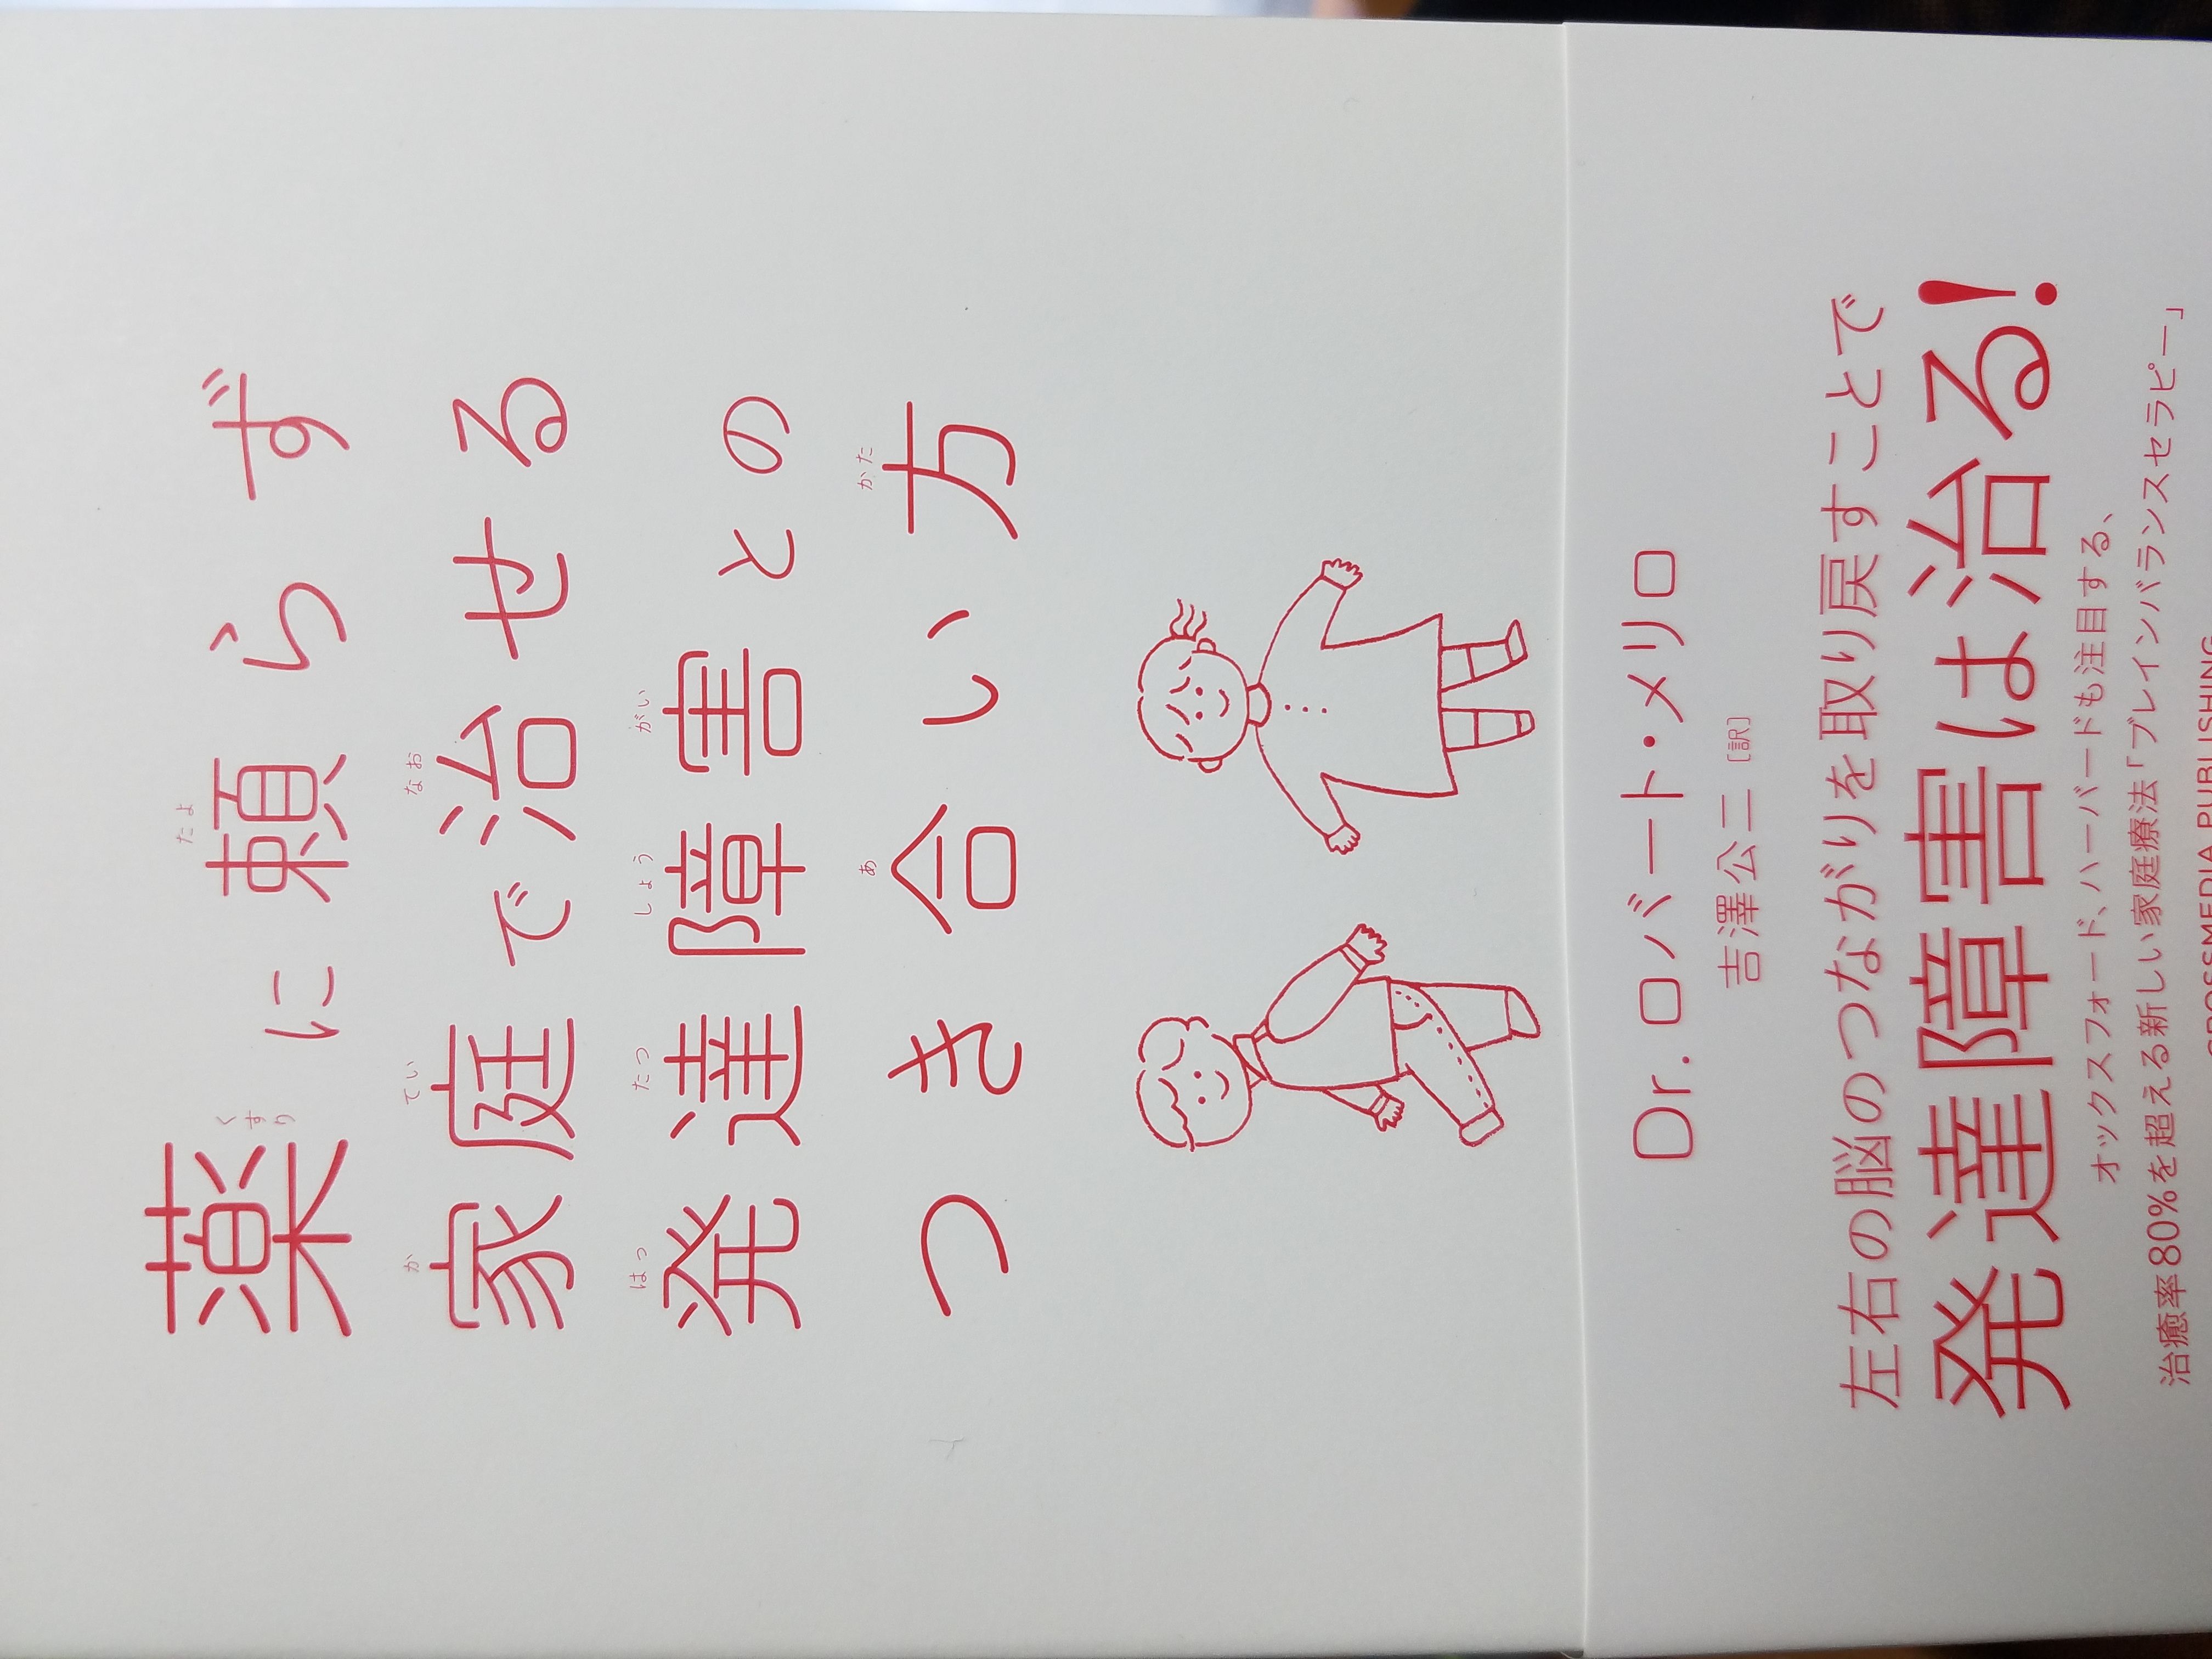 薬に頼らず
くすり たよ
家庭で治せる
か てい なお
発達障害との
はっ たつ しょう がい
つき合い方
あ かた
Dr.ロバート・メリロ
吉澤公二 [訳]
左右の脳のつながりを取り戻すことで
発達障害は治る!
オックスフォード、ハーバードも注目する、
治癒率80%を超える新しい家庭療法「ブレインバランスセラピー」
CROSSMEDIA PUBLISHING